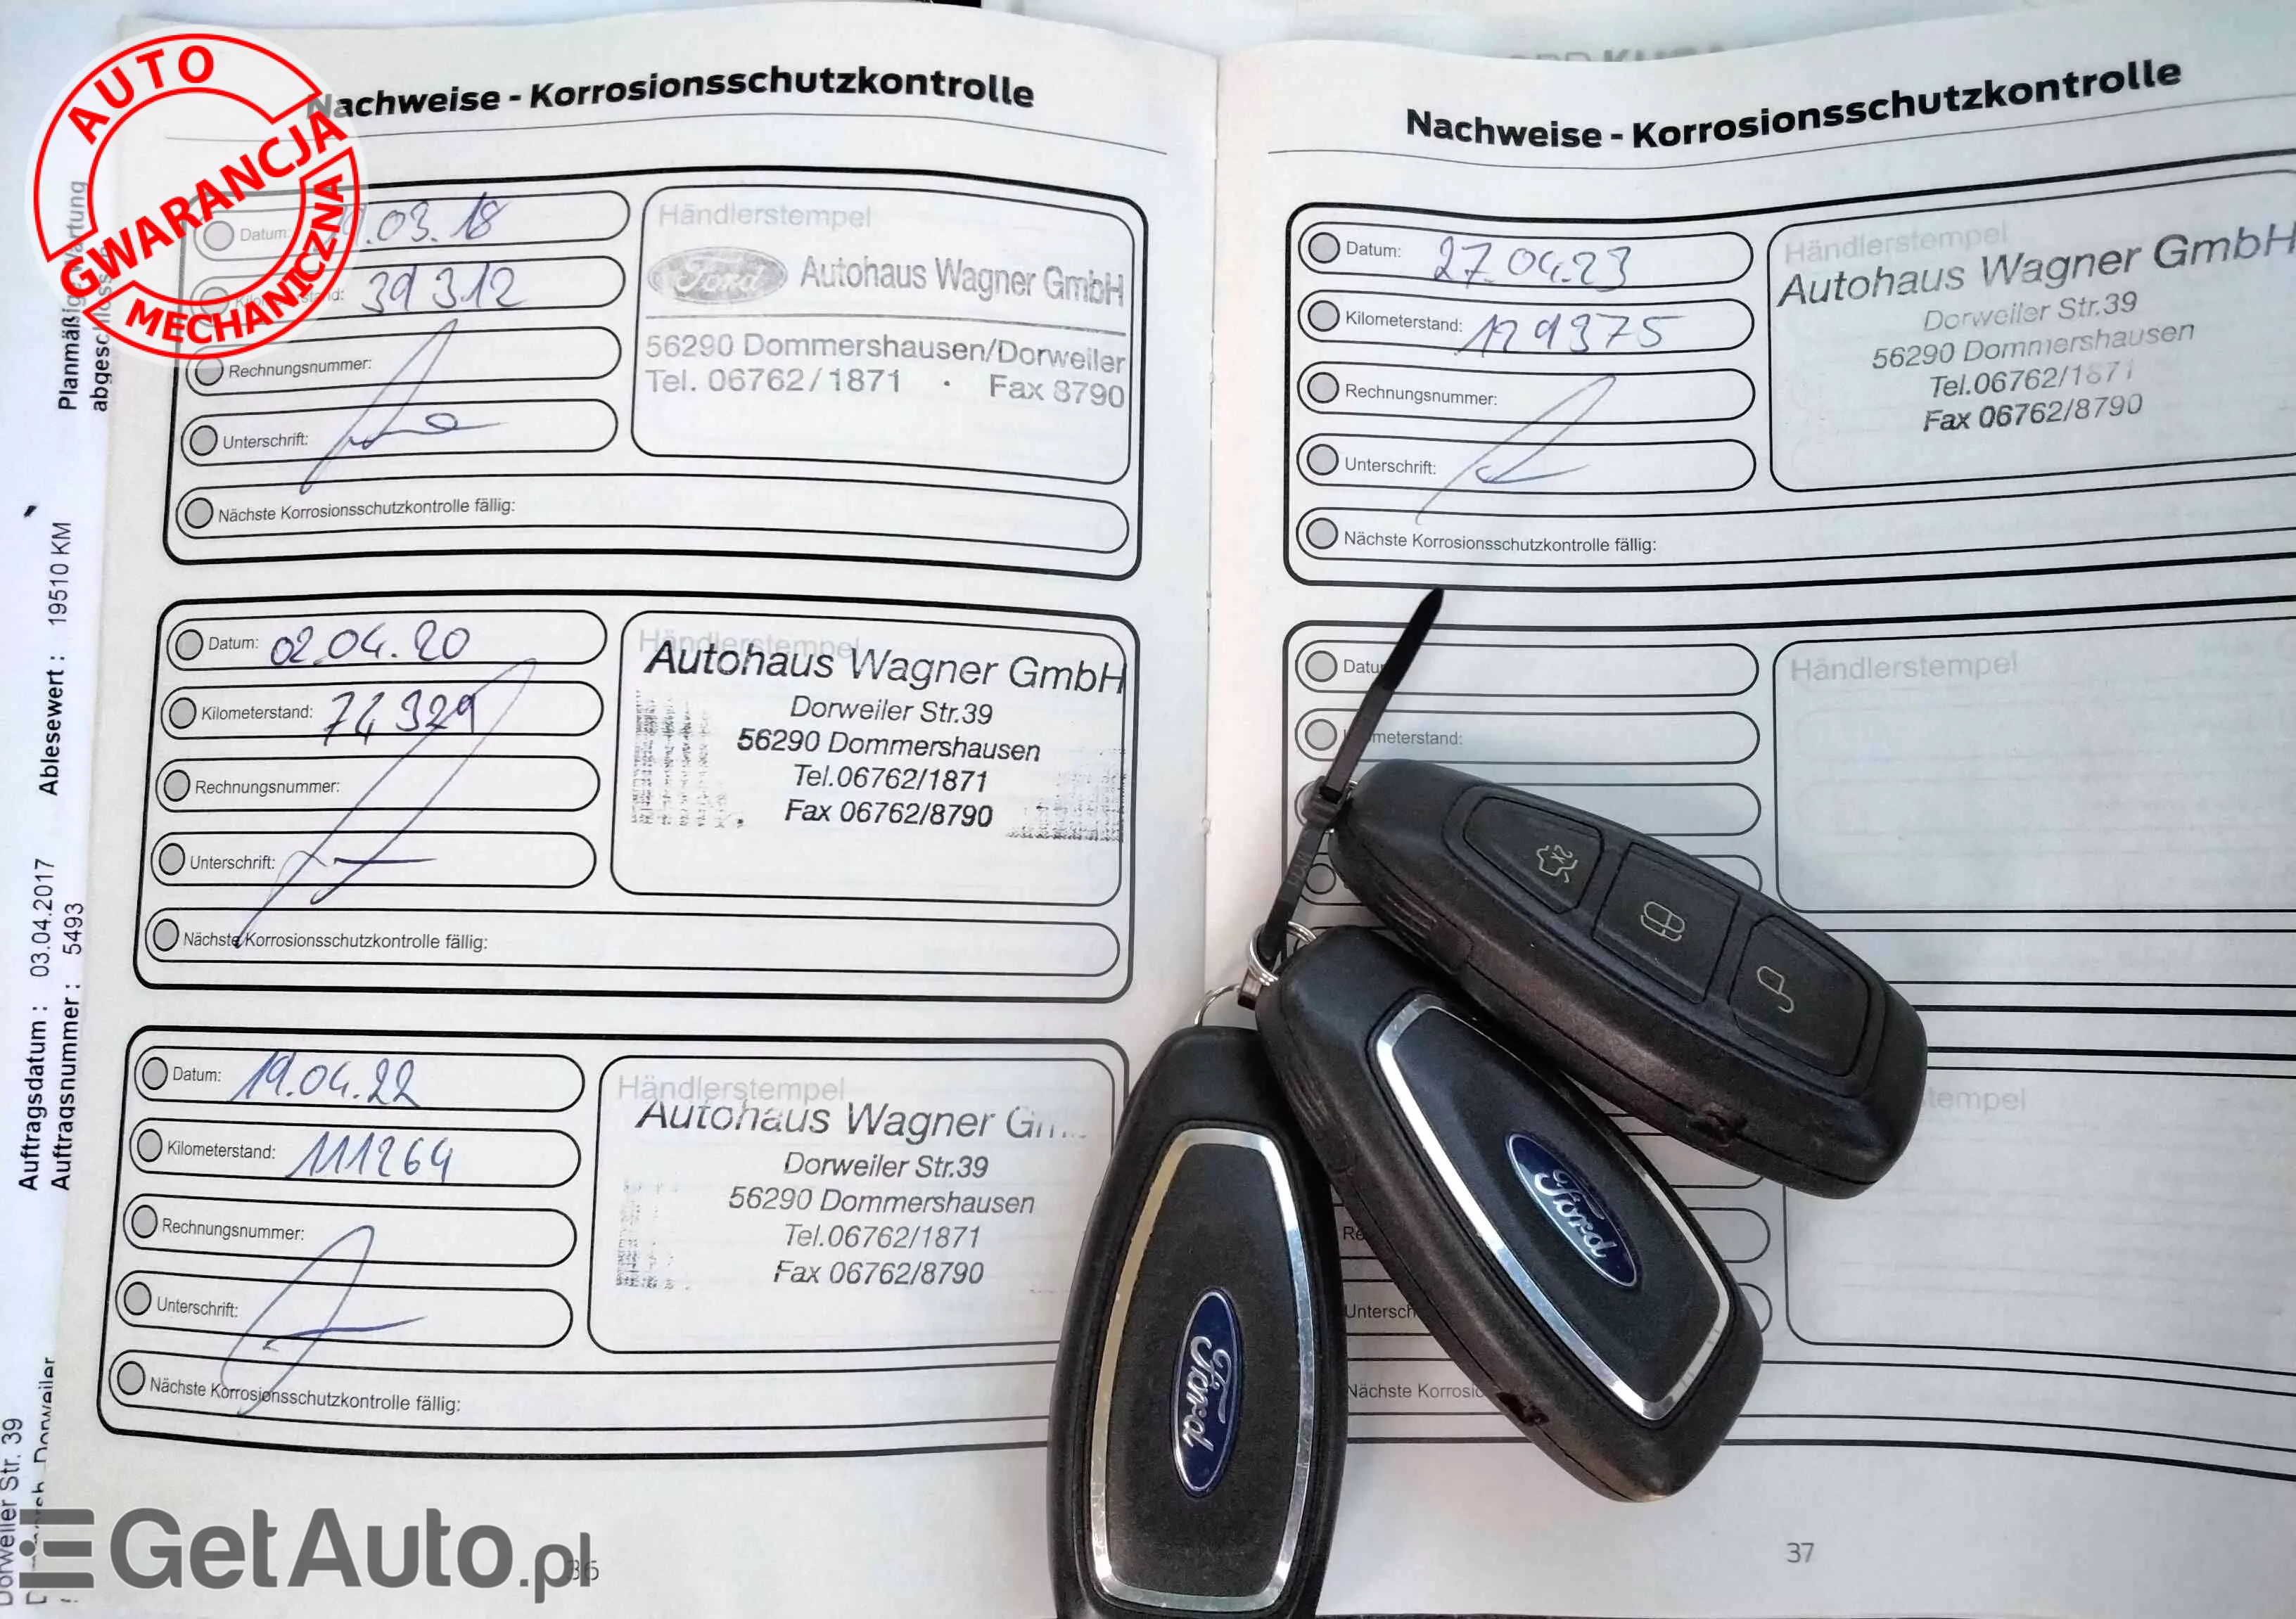 AUTO
GWARANCJA
MECHANICZNA
Nachweise - Korrosionsschutzkontrolle
Datum: .03.18
39 312
Rechnungsnummer:
Unterschrift:
Nächste Korrosionsschutzkontrolle fällig:
Händlerstempel
Ford Autohaus Wagner GmbH
56290 Dommershausen/Dorweiler
Tel. 06762/1871 · Fax 8790
Datum: 02.04.20
Kilometerstand: 74 329
Rechnungsnummer:
Unterschrift:
Nächste Korrosionsschutzkontrolle fällig:
Händlerstempel
Autohaus Wagner GmbH
Dorweiler Str.39
56290 Dommershausen
Tel.06762/1871
Fax 06762/8790
Datum: 19.04.22
Kilometerstand: 111264
Rechnungsnummer:
Unterschrift:
Nächste Korrosionsschutzkontrolle fällig:
Händlerstempel
Autohaus Wagner
Dorweiler Str.39
56290 Dommershausen
Tel.06762/1871
Fax 06762/8790
Nachweise - Korrosionsschutzkontrolle
Datum: 27.04.23
Kilometerstand: 129375
Rechnungsnummer:
Unterschrift:
Nächste Korrosionsschutzkontrolle fällig:
Händlerstempel
Autohaus Wagner GmbH
Dorweiler Str.39
56290 Dommershausen
Tel.06762/1871
Fax 06762/8790
Händlerstempel
37
Planmäßige Wartung
Ablesewert : 19510 KM
Auftragsdatum : 03.04.2017
Auftragsnummer : 5493
Dorweiler Str. 39
Dorweiler
2X
Ford
Ford
GetAuto.pl
36